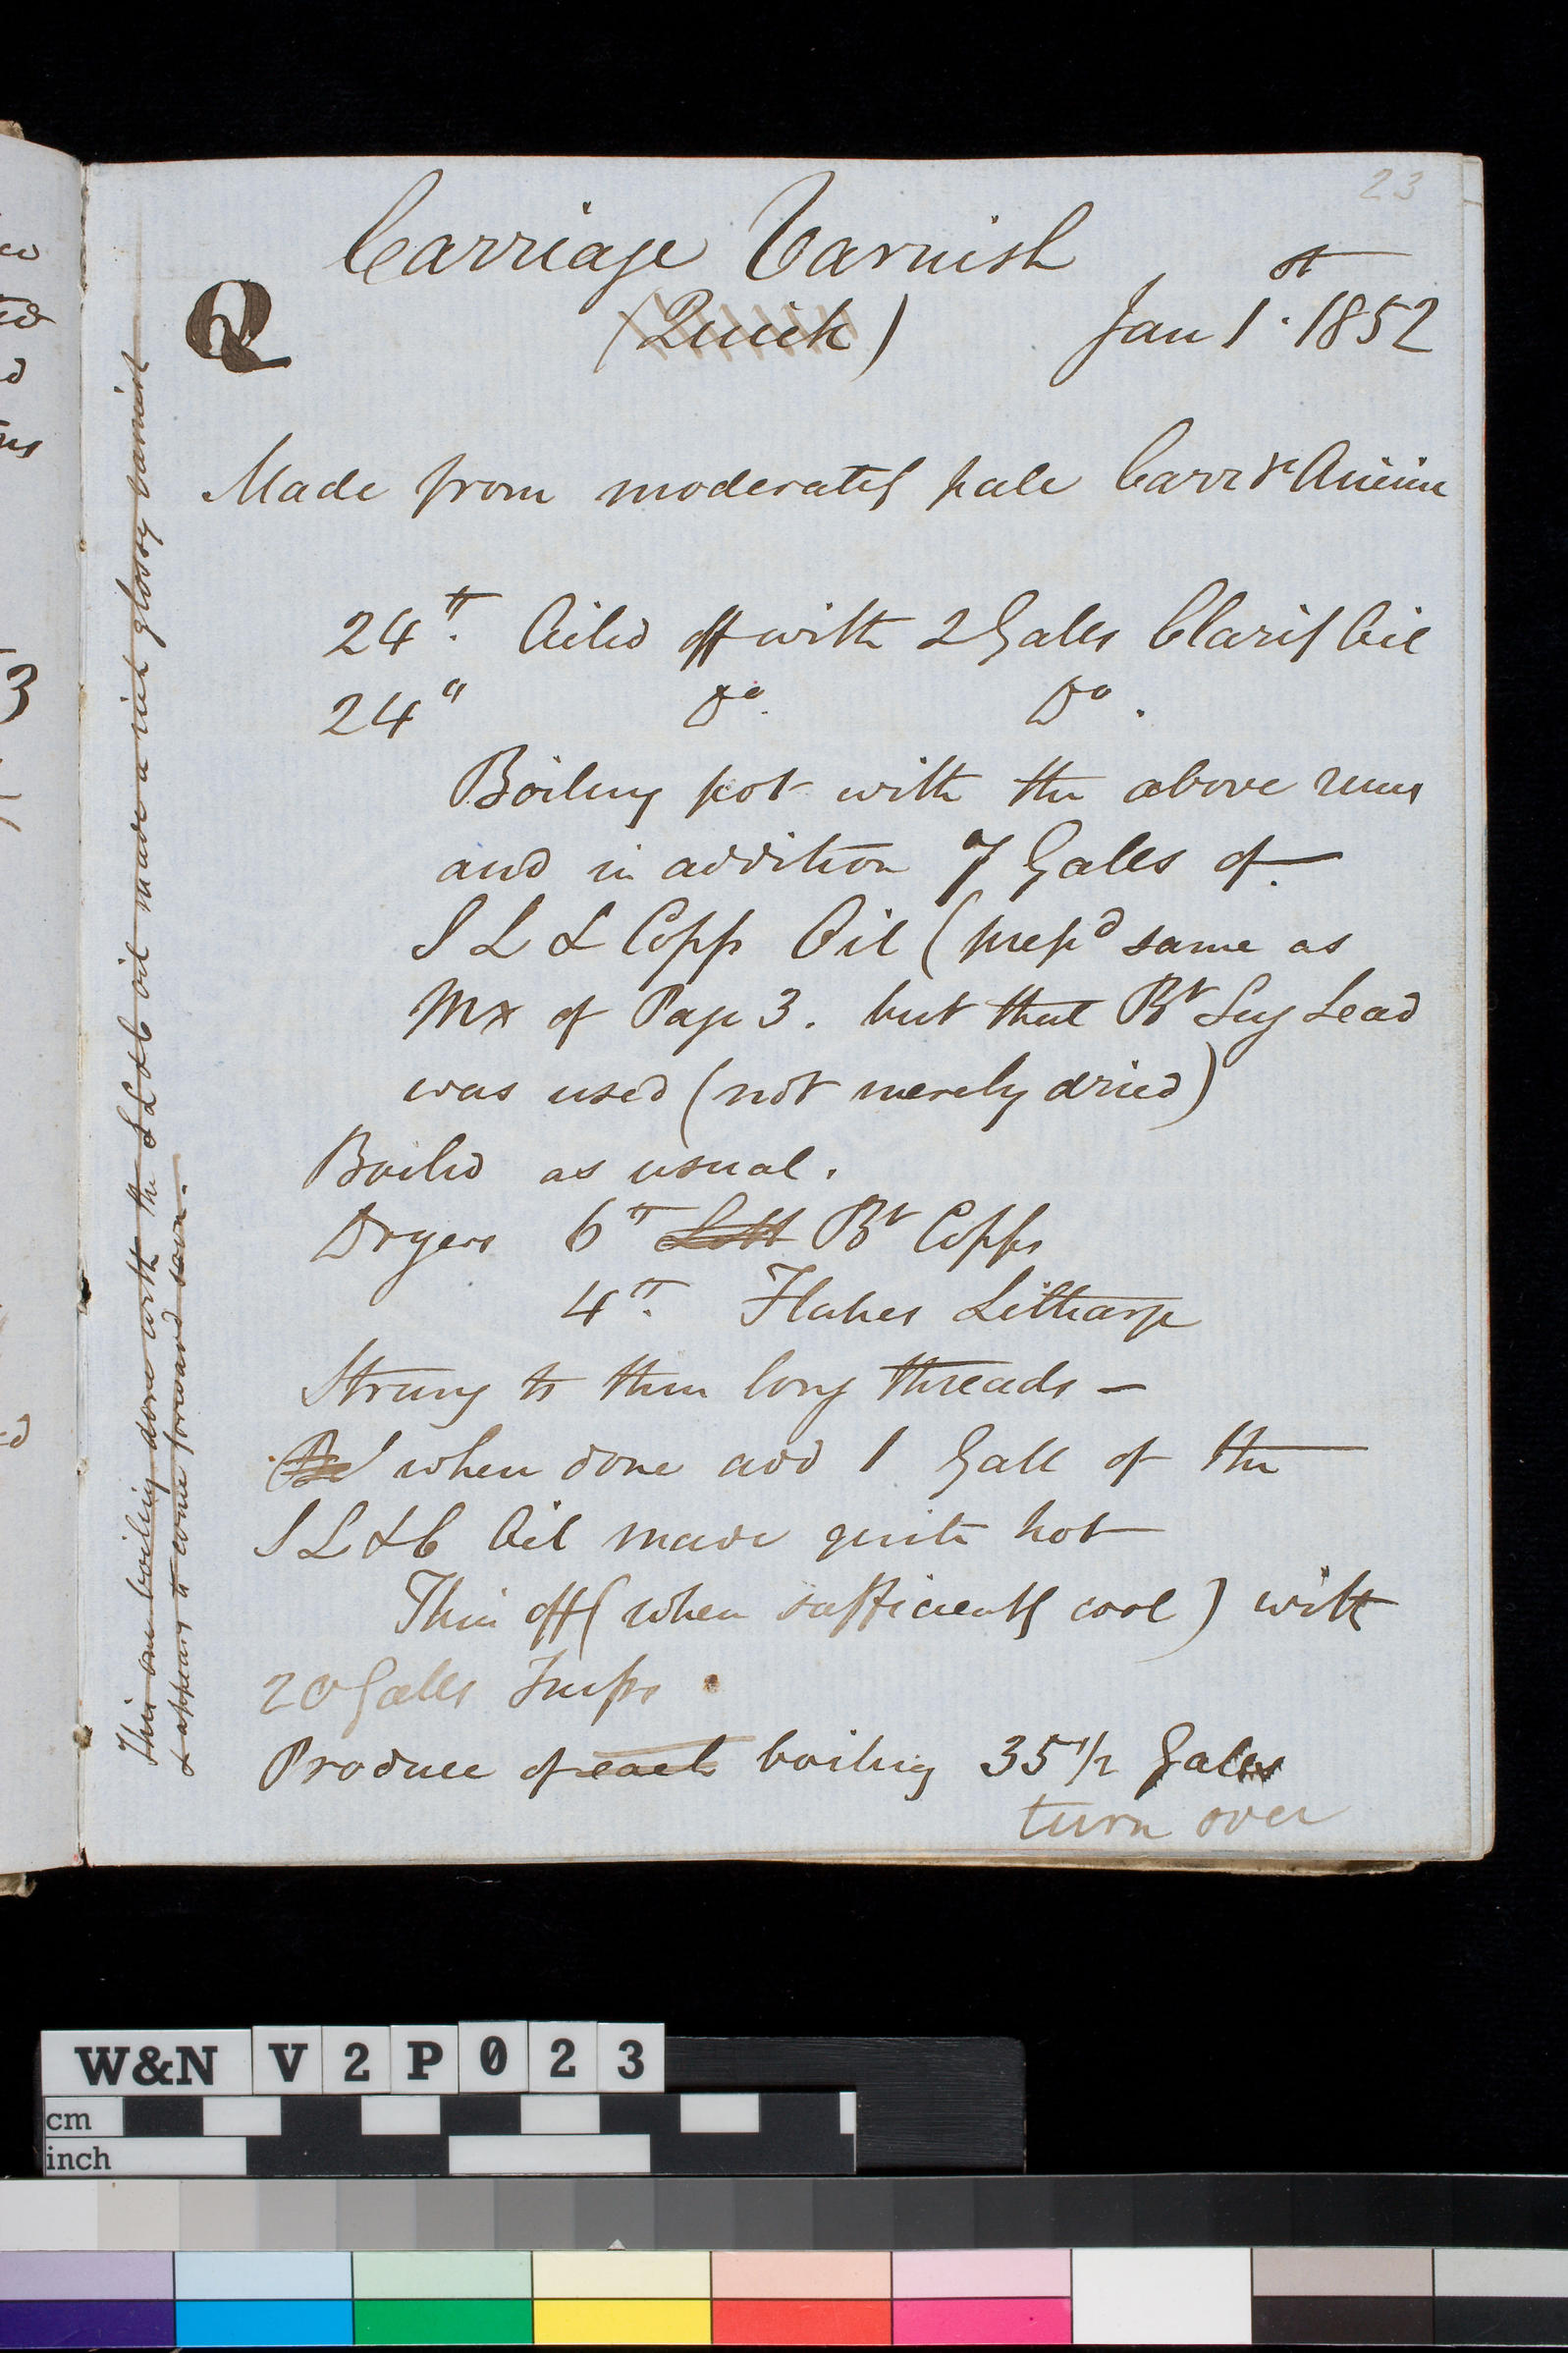 23
Carriage Varnish
Q (Quick) Jan 1st 1852
Made from moderately pale Carre Anime
24 lb. Oiled off with 2 Galls Clarif Oil
24 " Do. Do.
Boiling pot with the above runs
and in addition 7 Galls of
S L & Copp Oil (prepd same as
Mx of Page 3. but that Bt Sug Lead
was used (not merely dried)
Boiled as usual.
Dryers 6 lb Lith Bt Copps
4 lb. Flakes Litharge
Strung to thin long threads —
when done add 1 Gall of the
S L & C Oil made quite hot
Thin off (when sufficiently cool) with
20 Galls Turps
Produce of each boiling 35 1/2 Galls
turn over
This one boiling done with the S L & C oil made a nice glossy varnish
& appears to come forward soon.
3
W&N V2P023
cm
inch